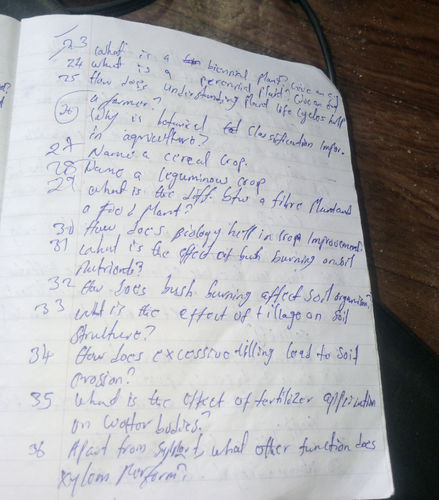 23 What is a biennial plant? Give an eg
24 What is a perennial plant? Give an eg
25 How does understanding Plant life cycles help
a farmer?
26 Why is botanical classification impor.
in agriculture?
27 Name a cereal crop.
28 Name a leguminous crop
29 What is the diff. btw a fibre Plant and
a food plant?
30 How does biology help in crop improvement.
31 What is the effect of bush burning on soil
nutrients?
32 How does bush burning affect soil organism?
33 What is the effect of tillage on soil
structure?
34 How does excessive tilling lead to soil
erosion?
35 What is the effect of fertilizer application
on water bodies?
36 Apart from support, what other function does
xylem perform?